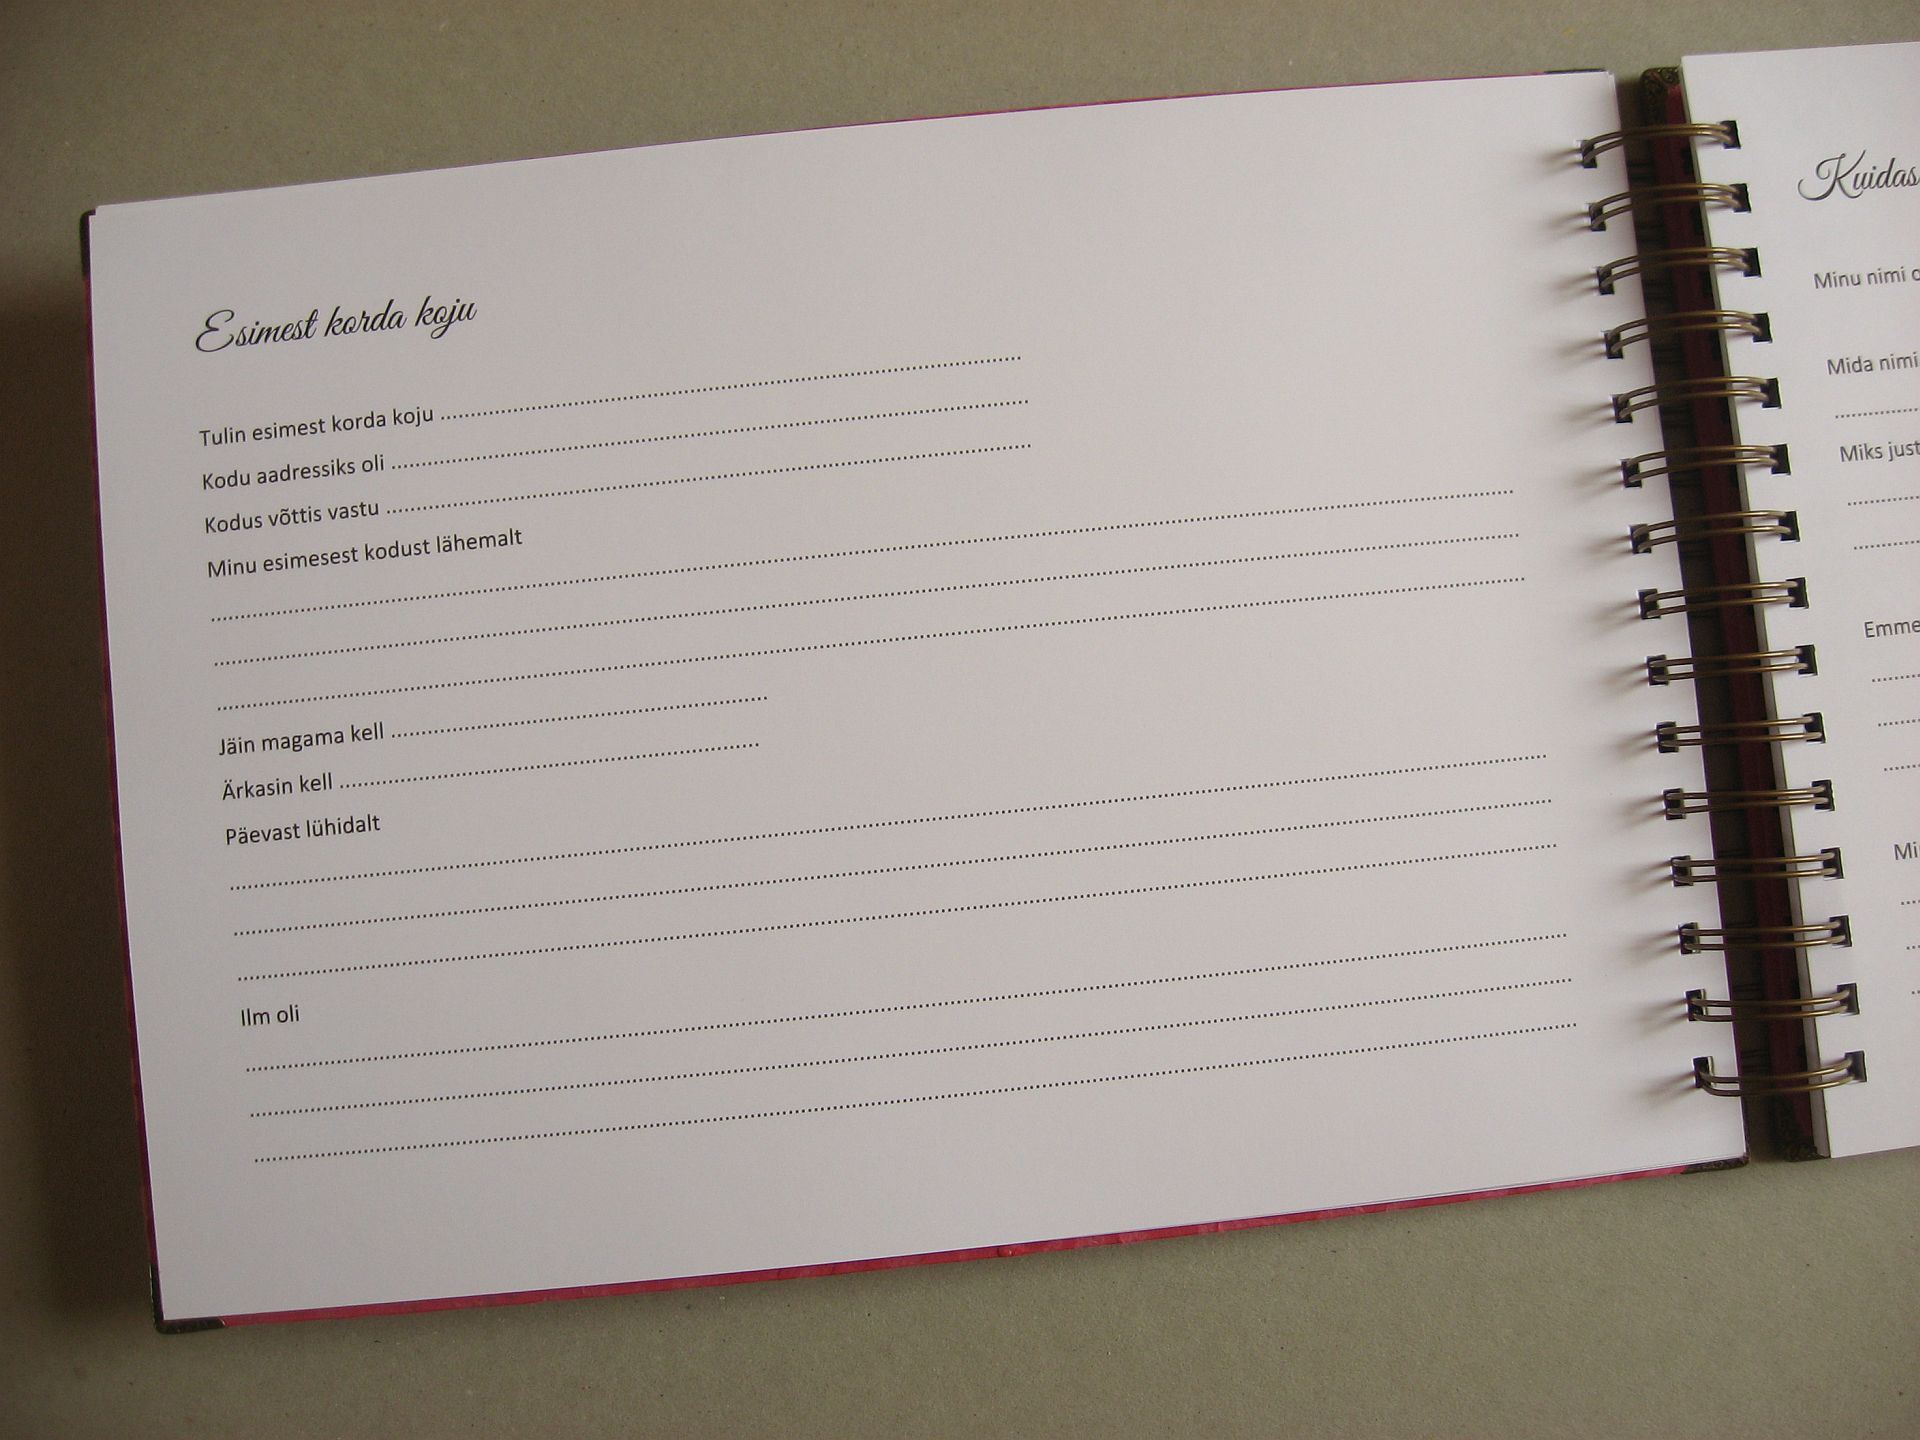 Esimest korda koju
Tulin esimest korda koju ........................................
Kodu aadressiks oli ........................................
Kodus võttis vastu ........................................
Minu esimesest kodust lähemalt
Jäin magama kell ........................................
Ärkasin kell ........................................
Päevast lühidalt
Ilm oli
Kuidas
Minu nimi
Mida nimi
Miks just
Emme